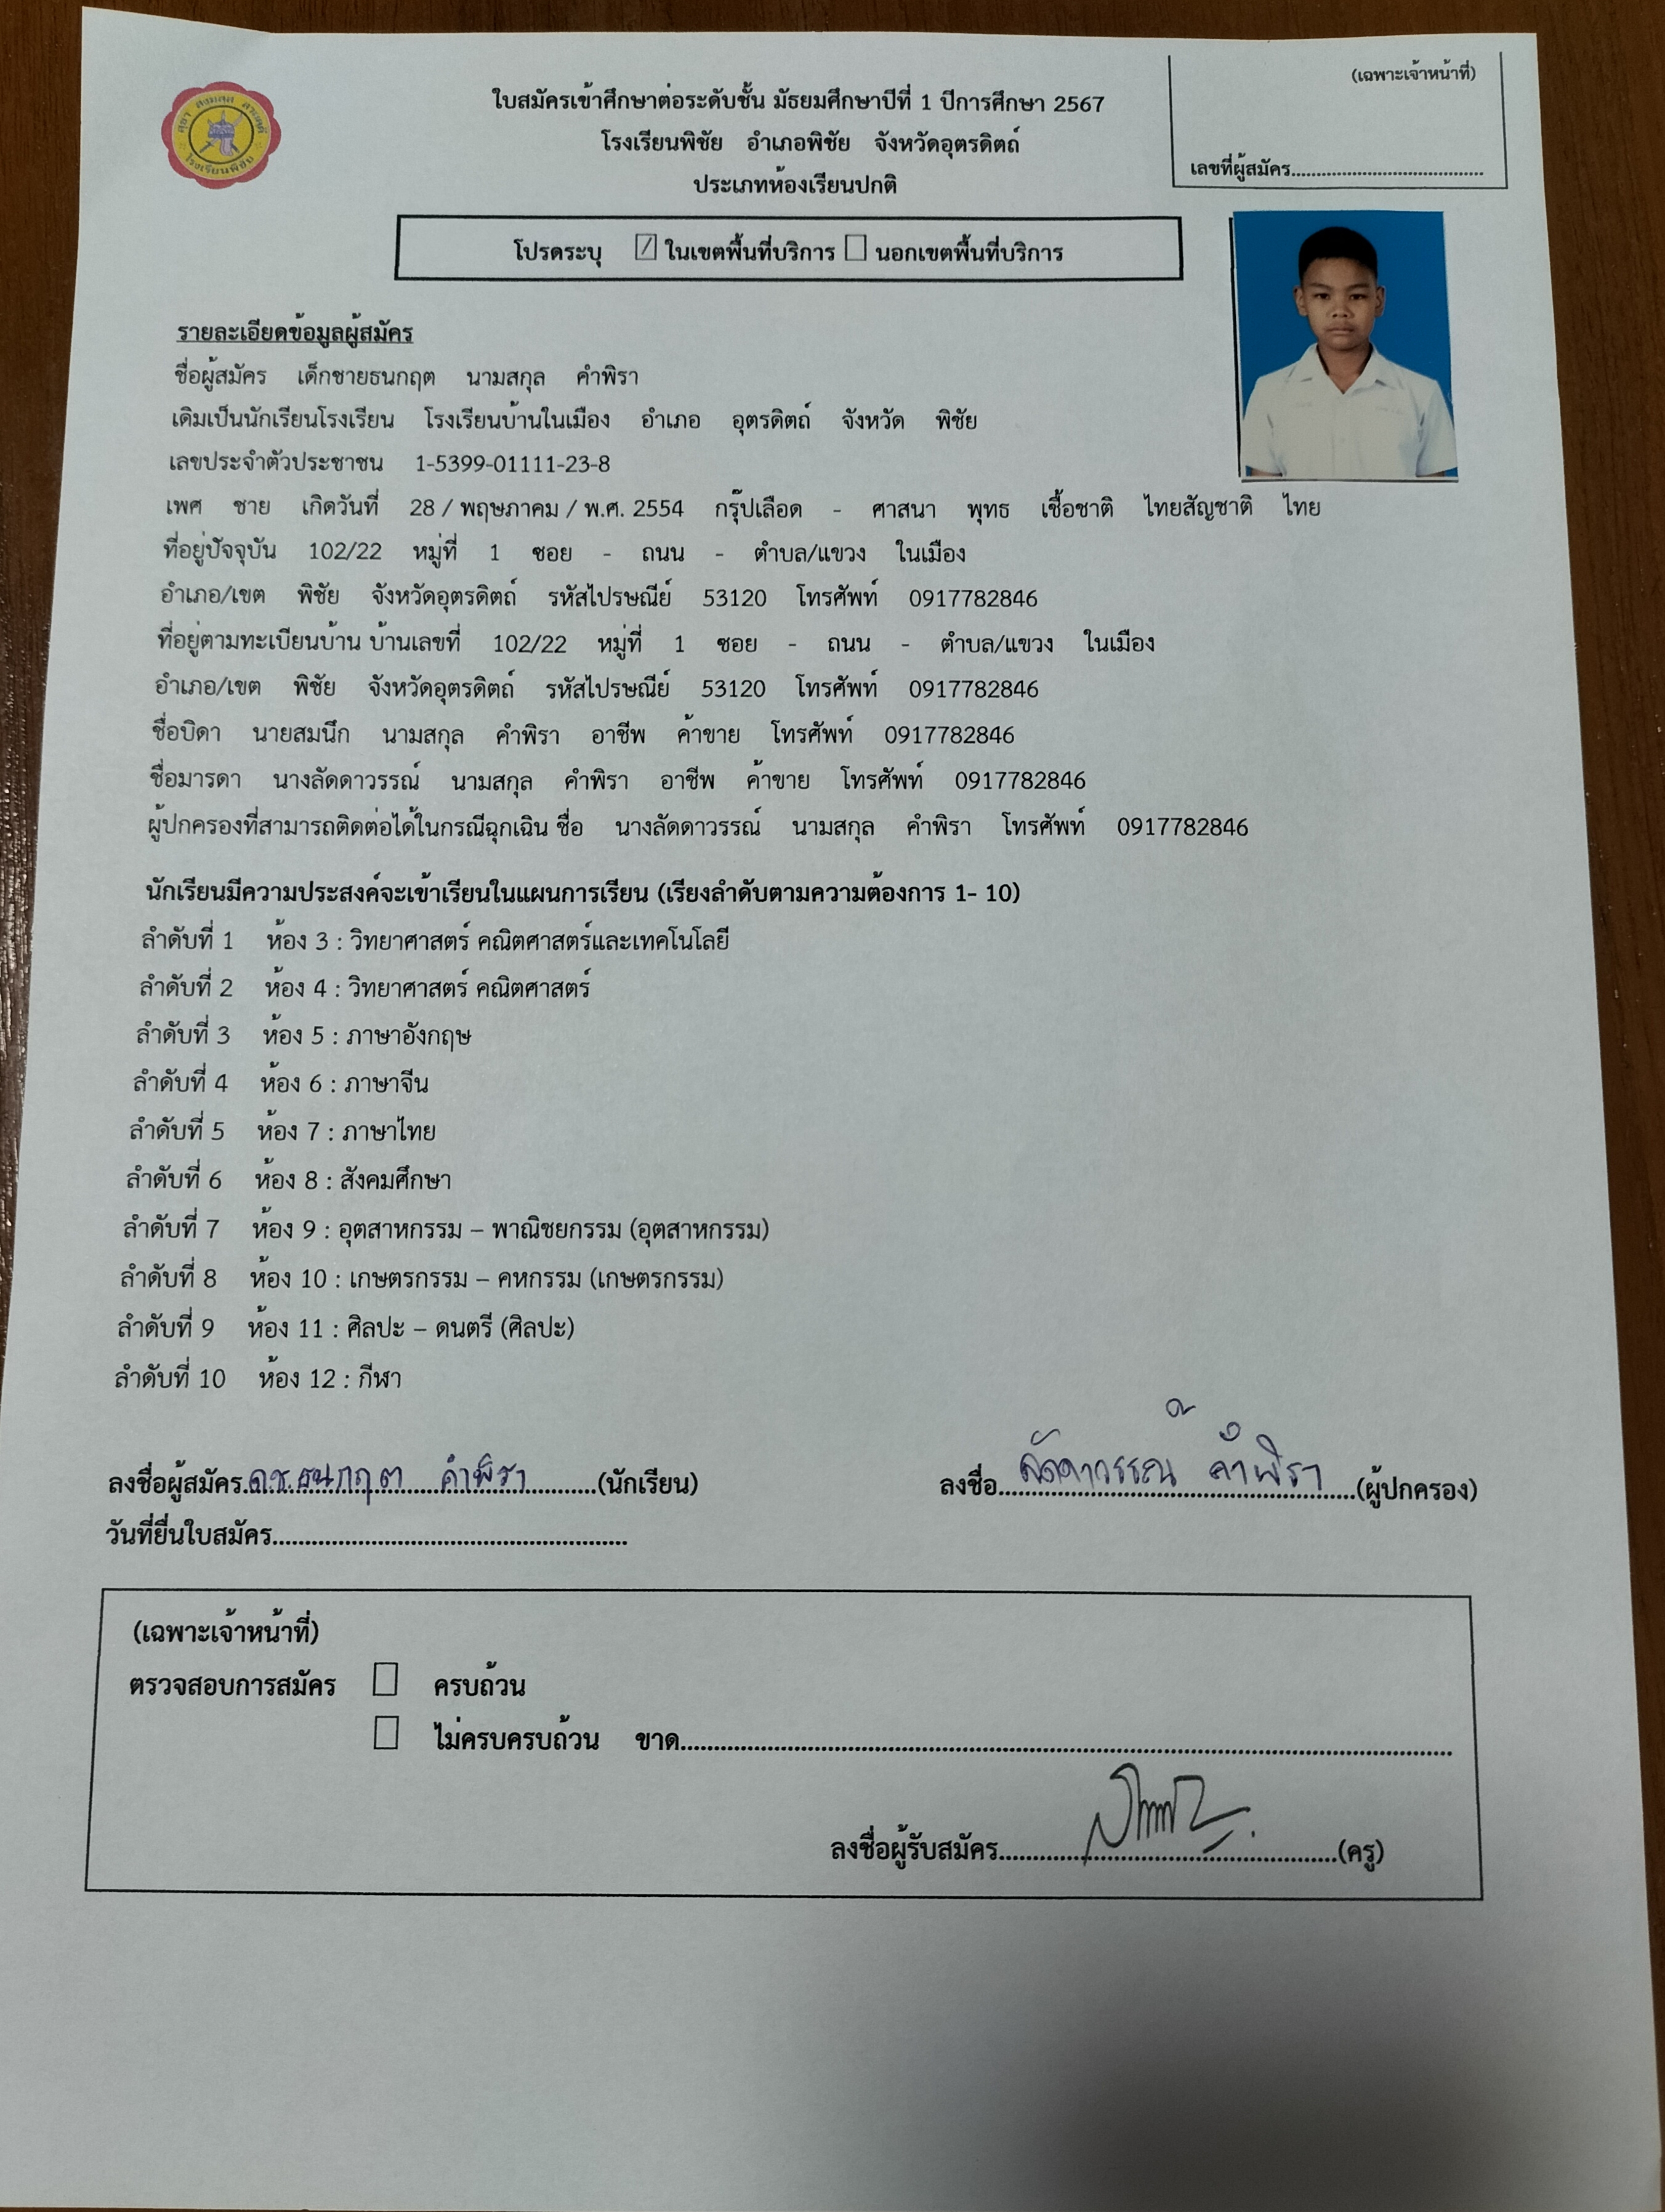 (เฉพาะเจ้าหน้าที่)
เลขที่ผู้สมัคร......................................
โรงเรียนพิชัย
ใบสมัครเข้าศึกษาต่อระดับชั้น มัธยมศึกษาปีที่ 1 ปีการศึกษา 2567
โรงเรียนพิชัย อำเภอพิชัย จังหวัดอุตรดิตถ์
ประเภทห้องเรียนปกติ
โปรดระบุ ☑ ในเขตพื้นที่บริการ ☐ นอกเขตพื้นที่บริการ
รายละเอียดข้อมูลผู้สมัคร
ชื่อผู้สมัคร เด็กชายธนกฤต นามสกุล คำพิรา
เดิมเป็นนักเรียนโรงเรียน โรงเรียนบ้านในเมือง อำเภอ อุตรดิตถ์ จังหวัด พิชัย
เลขประจำตัวประชาชน 1-5399-01111-23-8
เพศ ชาย เกิดวันที่ 28 / พฤษภาคม / พ.ศ. 2554 กรุ๊ปเลือด - ศาสนา พุทธ เชื้อชาติ ไทยสัญชาติ ไทย
ที่อยู่ปัจจุบัน 102/22 หมู่ที่ 1 ซอย - ถนน - ตำบล/แขวง ในเมือง
อำเภอ/เขต พิชัย จังหวัดอุตรดิตถ์ รหัสไปรษณีย์ 53120 โทรศัพท์ 0917782846
ที่อยู่ตามทะเบียนบ้าน บ้านเลขที่ 102/22 หมู่ที่ 1 ซอย - ถนน - ตำบล/แขวง ในเมือง
อำเภอ/เขต พิชัย จังหวัดอุตรดิตถ์ รหัสไปรษณีย์ 53120 โทรศัพท์ 0917782846
ชื่อบิดา นายสมนึก นามสกุล คำพิรา อาชีพ ค้าขาย โทรศัพท์ 0917782846
ชื่อมารดา นางลัดดาวรรณ์ นามสกุล คำพิรา อาชีพ ค้าขาย โทรศัพท์ 0917782846
ผู้ปกครองที่สามารถติดต่อได้ในกรณีฉุกเฉิน ชื่อ นางลัดดาวรรณ์ นามสกุล คำพิรา โทรศัพท์ 0917782846
นักเรียนมีความประสงค์จะเข้าเรียนในแผนการเรียน (เรียงลำดับตามความต้องการ 1- 10)
ลำดับที่ 1 ห้อง 3 : วิทยาศาสตร์ คณิตศาสตร์และเทคโนโลยี
ลำดับที่ 2 ห้อง 4 : วิทยาศาสตร์ คณิตศาสตร์
ลำดับที่ 3 ห้อง 5 : ภาษาอังกฤษ
ลำดับที่ 4 ห้อง 6 : ภาษาจีน
ลำดับที่ 5 ห้อง 7 : ภาษาไทย
ลำดับที่ 6 ห้อง 8 : สังคมศึกษา
ลำดับที่ 7 ห้อง 9 : อุตสาหกรรม – พาณิชยกรรม (อุตสาหกรรม)
ลำดับที่ 8 ห้อง 10 : เกษตรกรรม – คหกรรม (เกษตรกรรม)
ลำดับที่ 9 ห้อง 11 : ศิลปะ – ดนตรี (ศิลปะ)
ลำดับที่ 10 ห้อง 12 : กีฬา
ลงชื่อผู้สมัคร ด.ช.ธนกฤต คำพิรา (นักเรียน) ลงชื่อ ลัดดาวรรณ์ คำพิรา (ผู้ปกครอง)
วันที่ยื่นใบสมัคร......................................................
(เฉพาะเจ้าหน้าที่)
ตรวจสอบการสมัคร ☐ ครบถ้วน
☐ ไม่ครบครบถ้วน ขาด..........................................................................................
ลงชื่อผู้รับสมัคร....................................................(ครู)